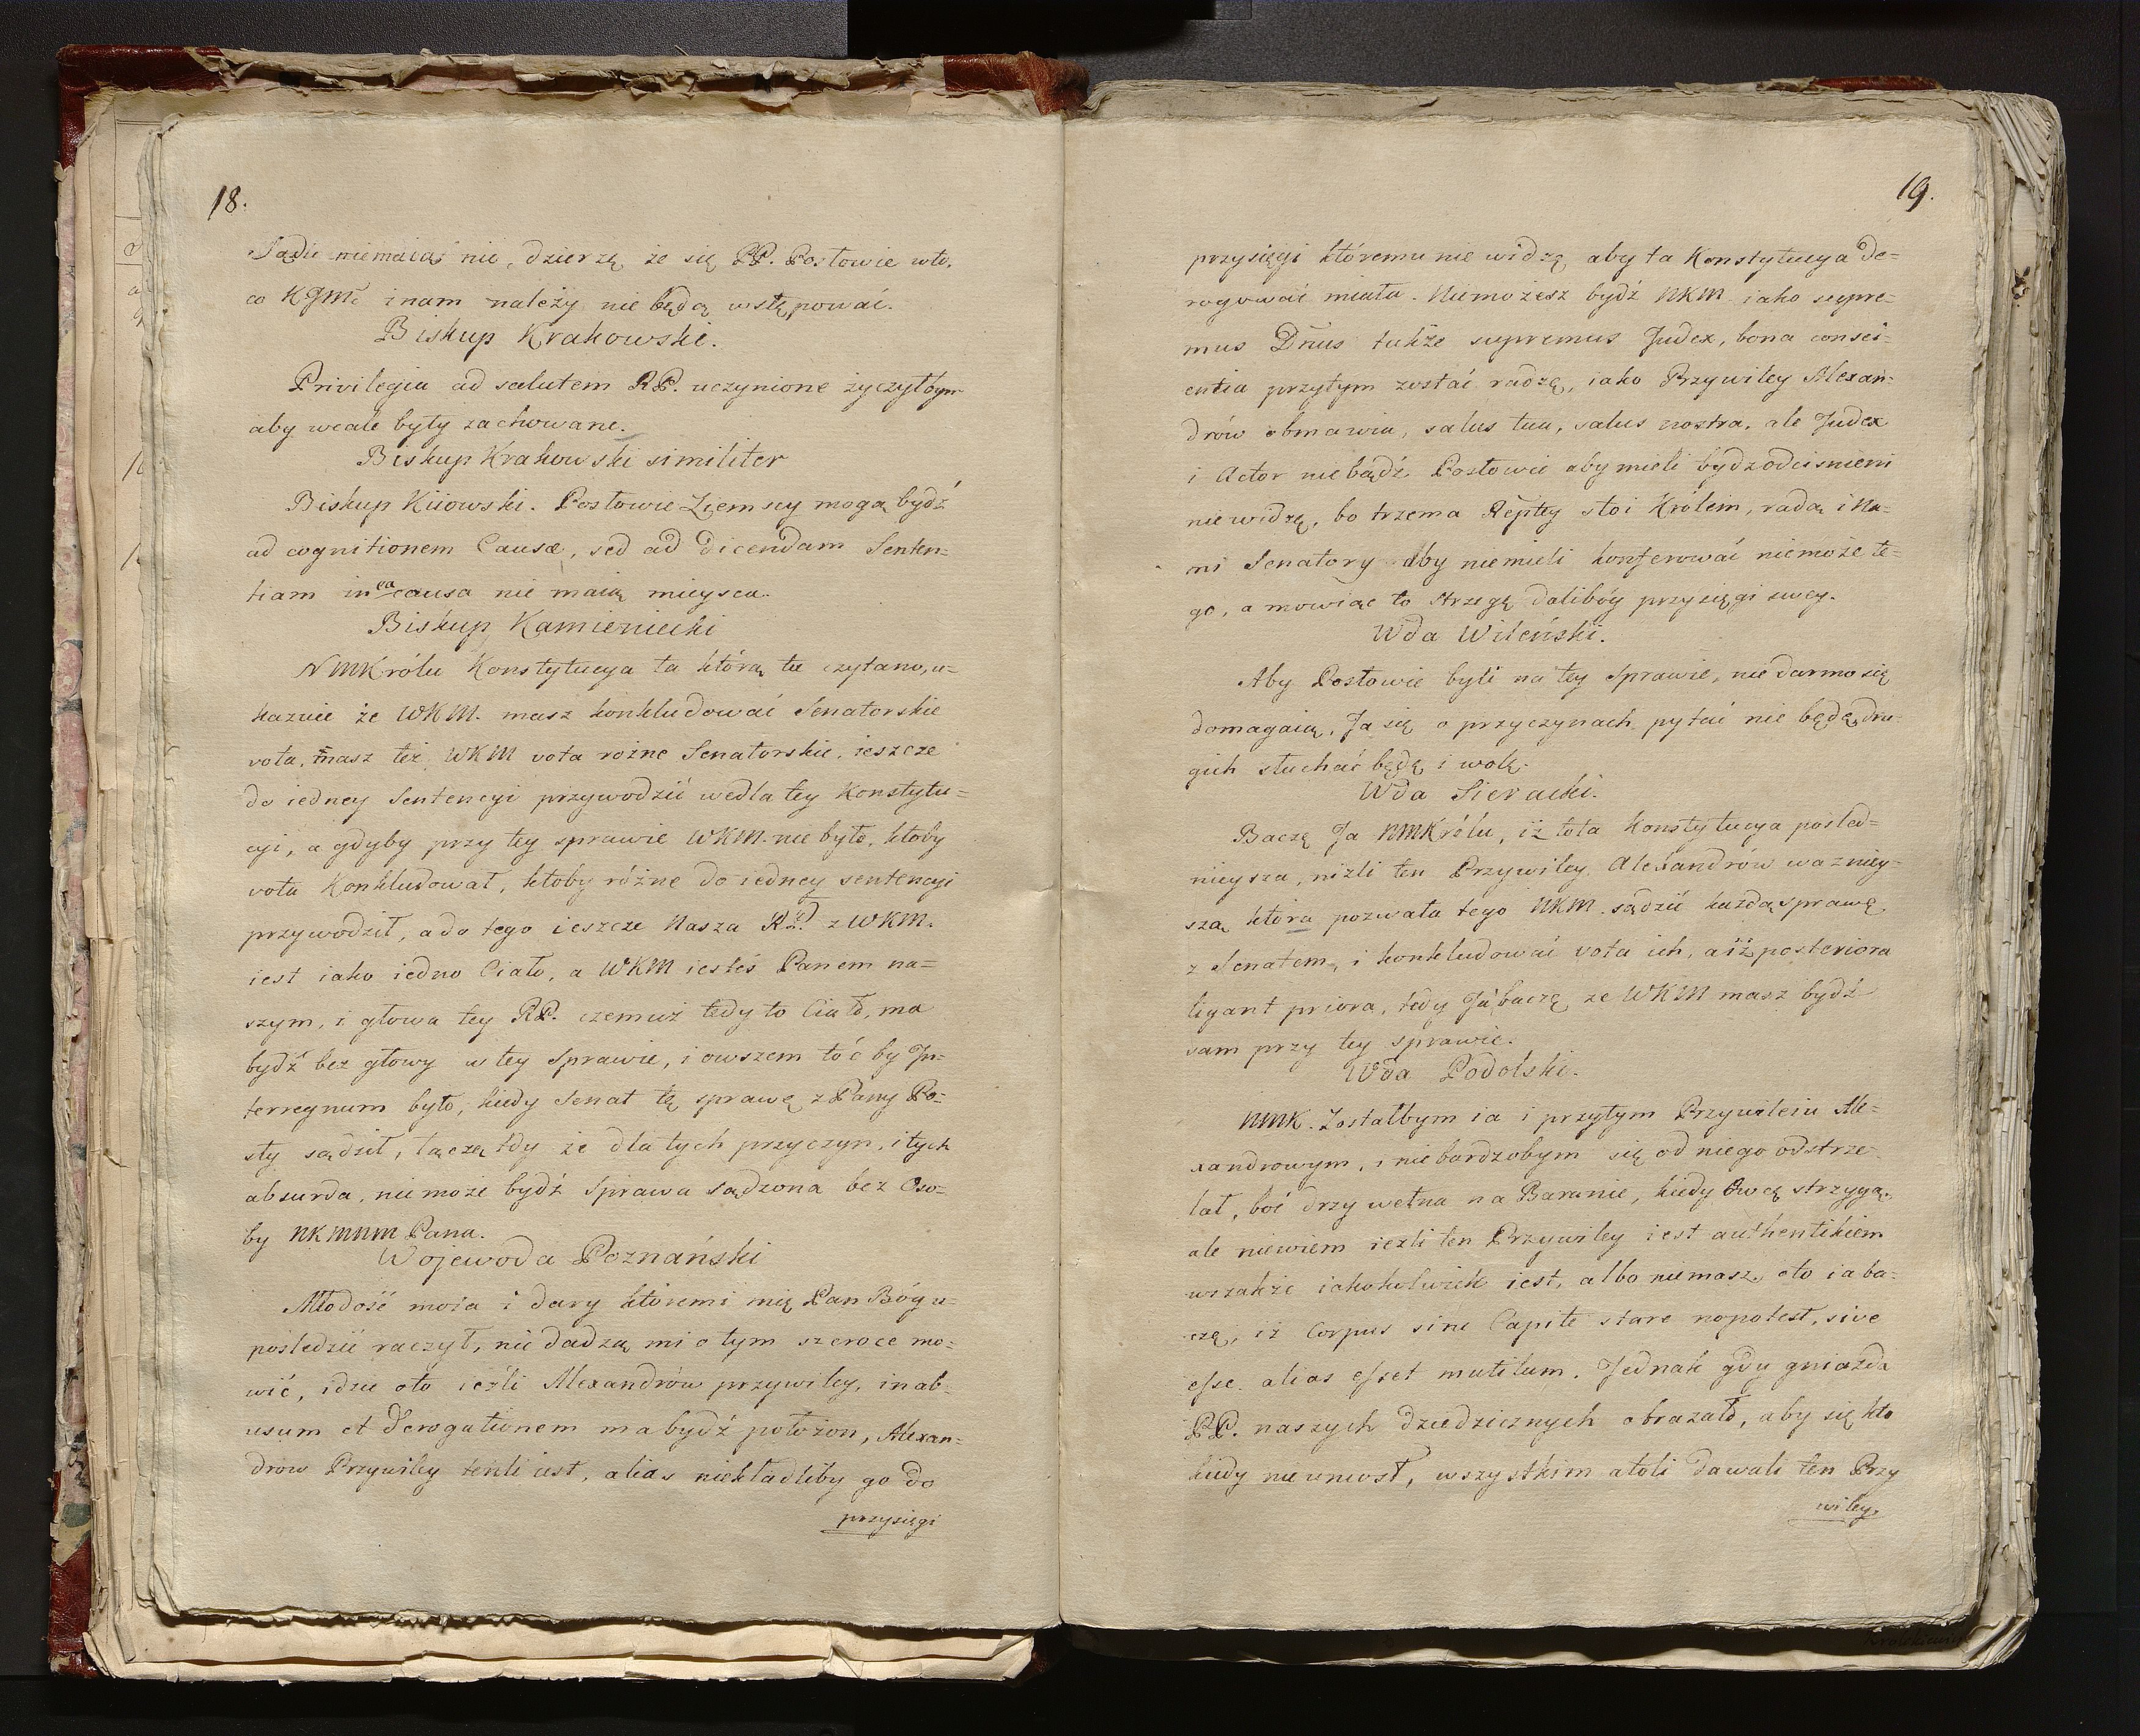 18.
Sądu niemaiąc nic, dzierzę że się PP. Posłowie wto,
co KJM. i nam należy nie będą wstępować.
Biskup Krakowski.
Privilegia ad salutem RP. uczynione życzyłbym
aby wcale były zachowane.
Biskup Krakowski similiter
Biskup Kiiowski. Posłowie Ziemscy mogą bydź
ad cognitionem Causæ, sed ad dicendam Senten=
tiam in ea causa nie maią mieysca.
Biskup Kamieniecki
NMKrólu Konstytucya ta którą tu czytano, u=
kazuie że WKM. masz konkludować Senatorskie
vota, masz też WKM vota rożne Senatorskie, ieszcze
do iedney Sentencyi przywodzić wedla tey Konstytu=
cyi, a gdyby przy tey sprawie WKM. nie było, ktoby
vota Konkludował, ktoby różne do iedney sentencyi
przywodził, a do tego ieszcze Nasza z WKM.
iest iako iedno Ciało, a WKM iesteś Panem na=
szym, i głowa tey RP. czemuż tedy to Ciało, ma
bydź bez głowy w tey Sprawie, i owszem toć by In=
terregnum było, kiedy Senat tę sprawę z Pany Po=
sły sądził, tdy że dla tych przyczyn, i tych
absurda, niemoże bydź Sprawa sądzona bez Oso=
by NKMNM Pana.
Wojewoda Poznański
Młodość moia i dary któremi mię Pan Bóg u=
pośledzić raczył, nie dadzą mi o tym szeroce mo=
wić, idzie oto ieżli Alexandrów przywiley, in ab=
usum et derogationem ma bydź położon, Alexan=
drow Przywiley iest, alias niekładliby go do
przysięgi
19.
przysięgi któremu nie widzę aby ta Konstytucya de=
rogować miała. Niemożesz bydź NKM iako supre=
mus Dnus także supremus Judex, bona consci=
entia przytym zostać radzę, iako Przywiley Alexan=
drów obmawia, salus tua, salus nostra, ale Judex
i Actor nie bądź. Posłowie aby mieli bydz odcisnieni
nie widzę, bo trzema Reptey stoi Królem, radą i Na=
mi Senatory aby niemieli konferować niemoże te=
go, a mowiąc to strzegę dalibóg przysięgi swey.
Wda Wileński.
Aby Posłowie byli na tey Sprawie, nie darmo się
domagaią, Ja się o przyczynach pytać nie będę, dru=
gich słuchać będę i wolę.
Wda Sieracki.
Baczę Ja NMKrólu, iż tota Konstytucya pośled=
nieysza, niżli ten Przywiley Alexandrów ważniey=
szą, która pozwala tego NKM. sądzić każdą sprawę
z Senatem, i konkludować vota ich, a iż posteriora
ligant priora, tedy Ja baczę, ze WKM masz bydź
sam przy tey sprawie.
Wda Podolski.
NMK. Zostałbym ia i przytym Przywileiu Ale=
xandrowym, i nie bardzobym się od niego odstrze=
lał, boć drzy wełna na Baranie, kiedy Owcę strzygą,
ale niewiem ieżli ten Przywiley iest authentikiem
wszakże iakokolwiek iest, albo niemasz, oto ia ba=
czę, iż Corpus sine Capite stare nopotest, sive
esse. alias esset mutilum. Jednak gdy gniazda
PP. naszych dziedzicznych obrazało, aby się kto
kiedy nie uniosł, wszystkim atoli dawali ten Przy
wiley.